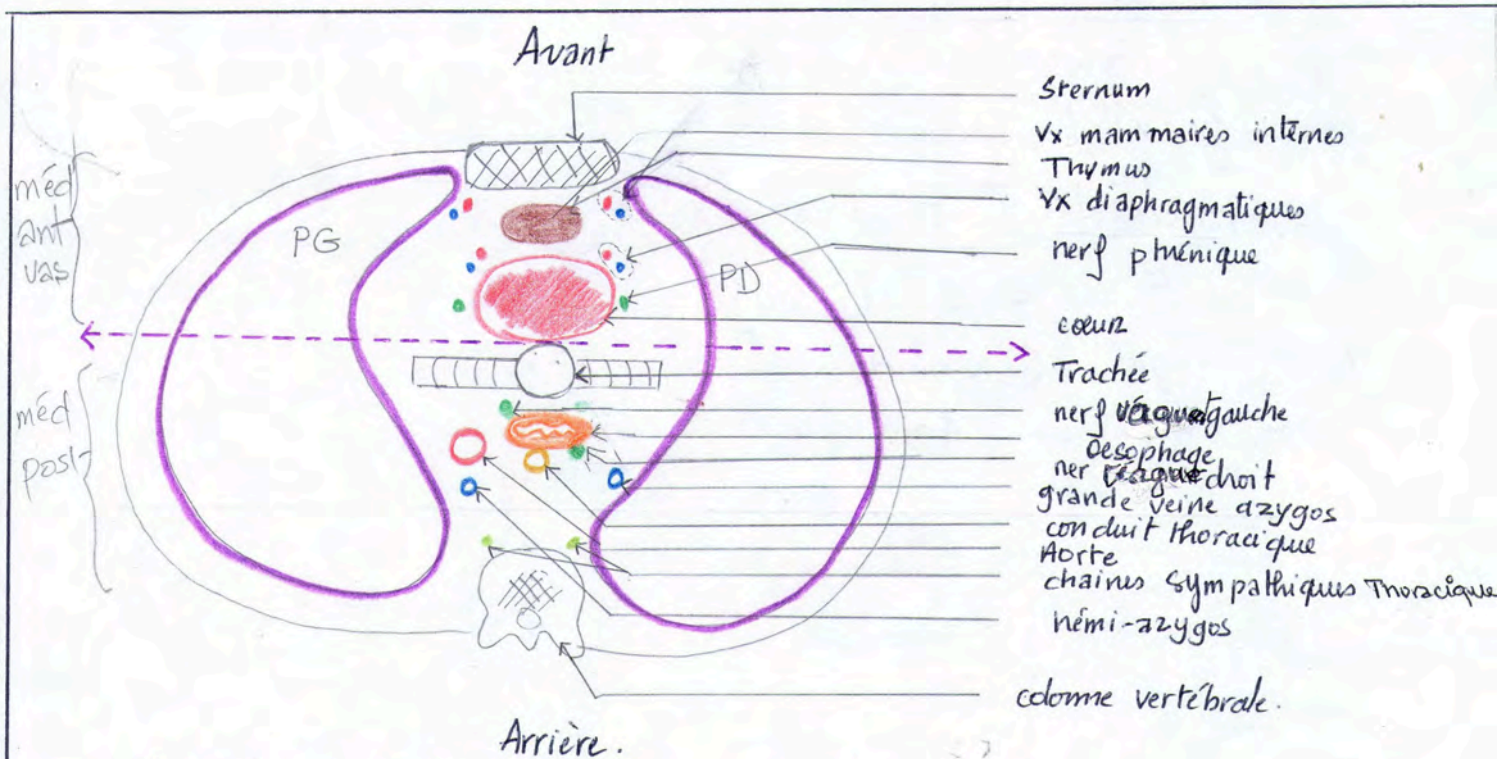 Avant
Sternum
Vx mammaires internes
Thymus
Vx diaphragmatiques
nerf phrénique
cœur
Trachée
nerf vague gauche
Oesophage
ner vague droit
grande veine azygos
conduit thoracique
Aorte
chaines sympathiques Thoracique
hémi-azygos
colonne vertébrale.
méd
ant
vas
PG
PD
méd
post
Arrière.